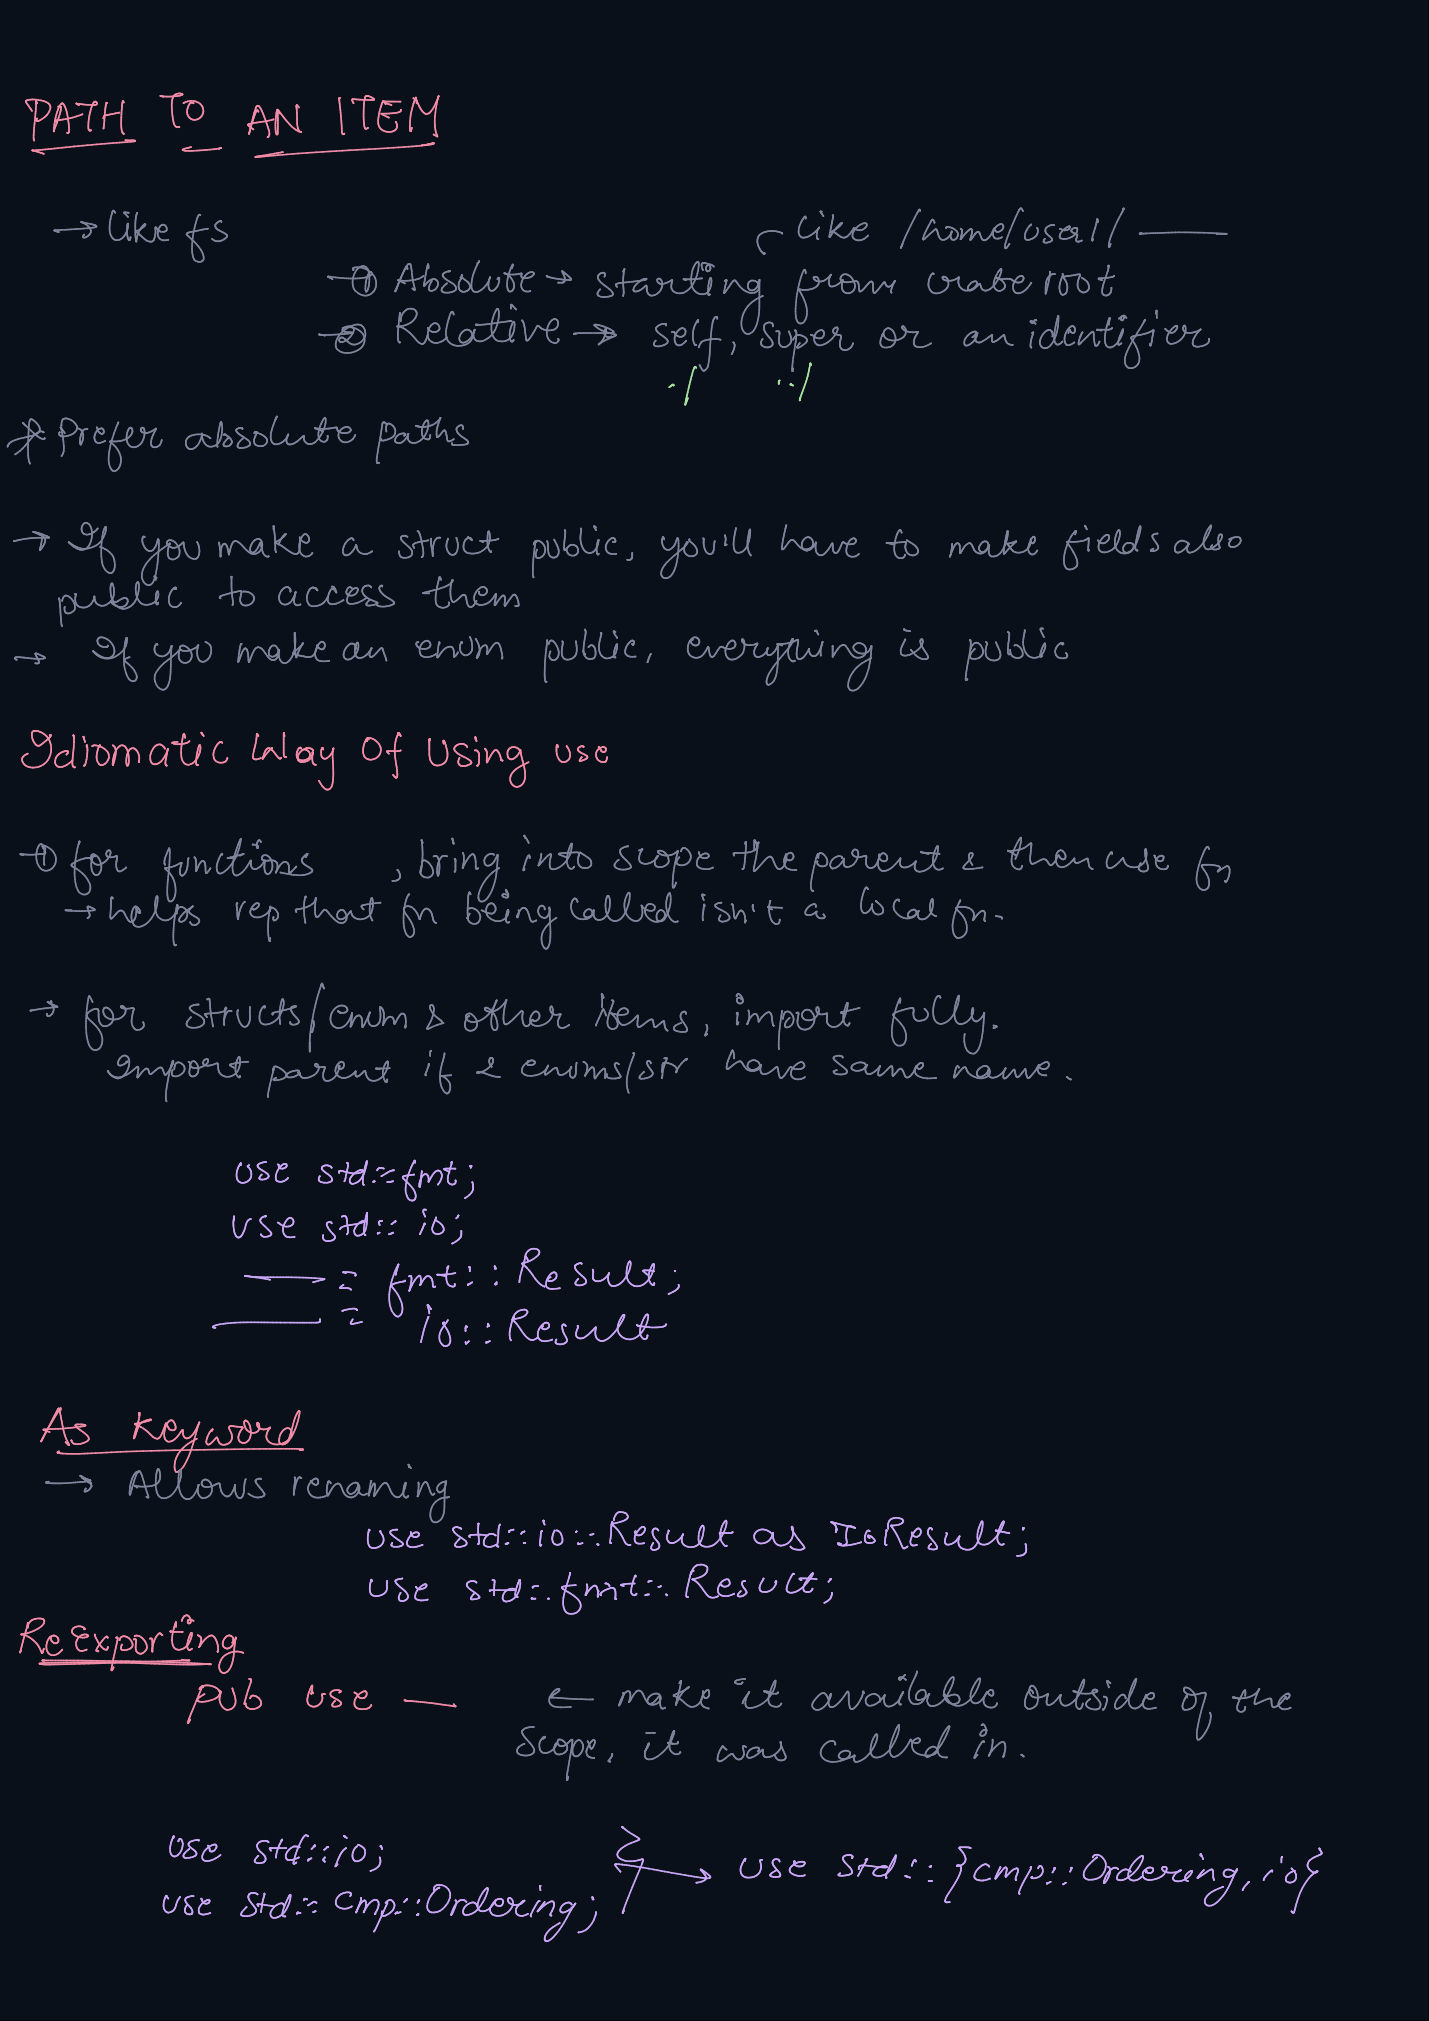 PATH TO AN ITEM
→ like fs
like /home/user1/ ——
① Absolute → starting from crate root
② Relative → self, super or an identifier
./ ../
* Prefer absolute paths
→ If you make a struct public, you'll have to make fields also
public to access them
→ If you make an enum public, everything is public
Idiomatic Way Of Using use
① for functions , bring into scope the parent & then use fn
→ helps rep that fn being called isn't a local fn.
→ for structs/enum & other items, import fully.
Import parent if 2 enums/str have same name.
use std::fmt;
use std::io;
—— = fmt::Result;
—— = io::Result
As Keyword
→ Allows renaming
use std::io::Result as IoResult;
use std::fmt::Result;
ReExporting
pub use — ← make it available outside of the
scope, it was called in.
use std::io;
use std::cmp::Ordering; } → use std::{cmp::Ordering, io}